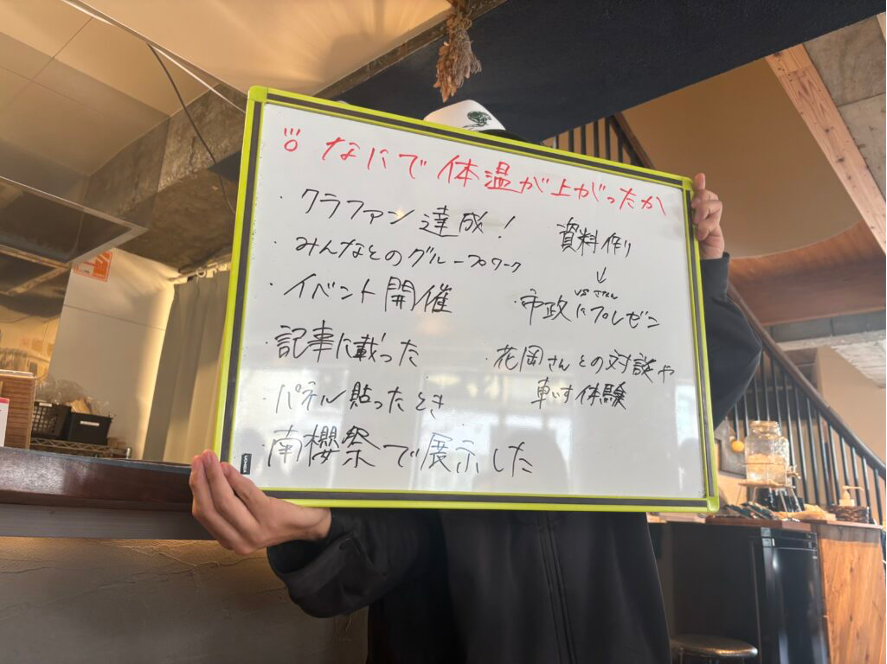 なにで体温が上がったか
・クラファン達成!
・みんなとのグループワーク
・イベント開催
・記事に載った
・パネル貼ったとき
・南櫻祭で展示した
資料作り
↓
・市政にプレゼン
・花岡さんとの対談や
車いす体験